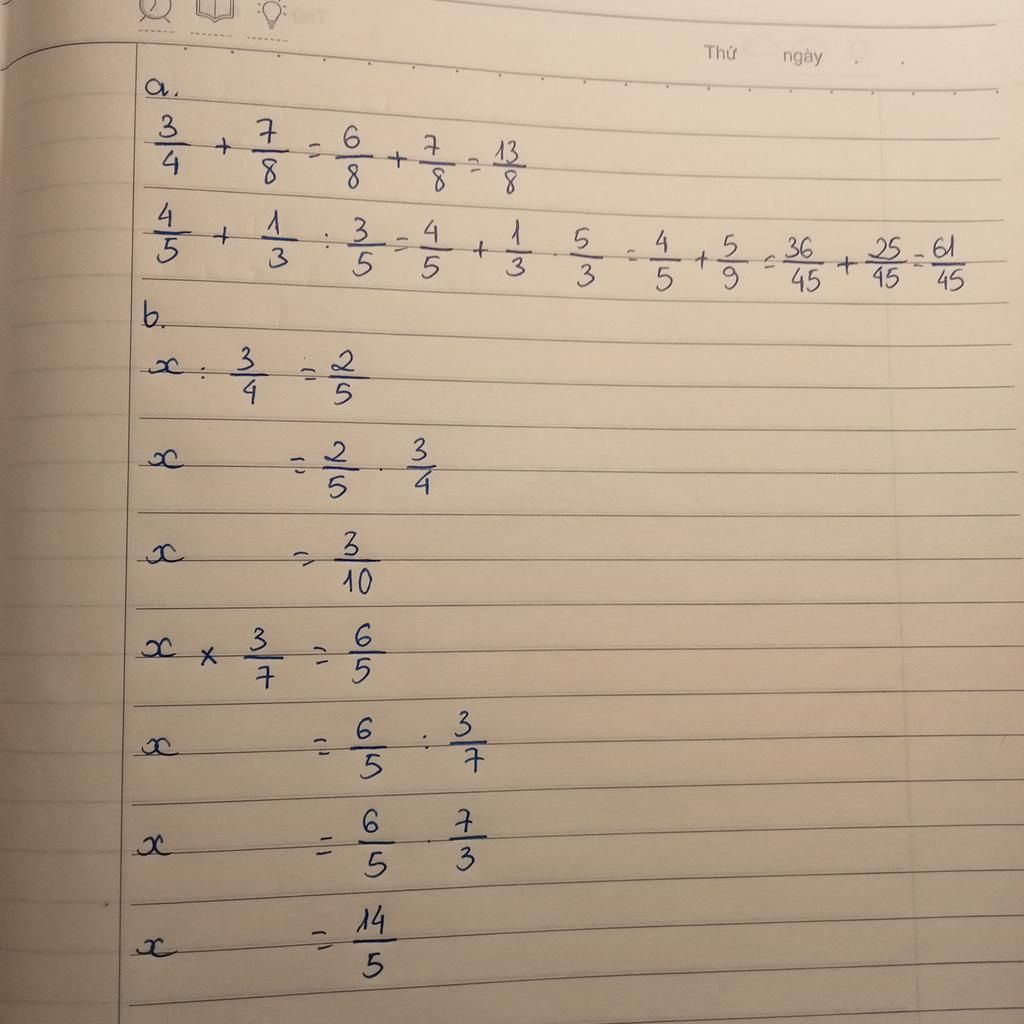 Thứ ngày
a.
3/4 + 7/8 = 6/8 + 7/8 = 13/8
4/5 + 1/3 : 3/5 = 4/5 + 1/3 . 5/3 = 4/5 + 5/9 = 36/45 + 25/45 = 61/45
b.
x : 3/4 = 2/5
x = 2/5 . 3/4
x = 3/10
x × 3/7 = 6/5
x = 6/5 : 3/7
x = 6/5 . 7/3
x = 14/5